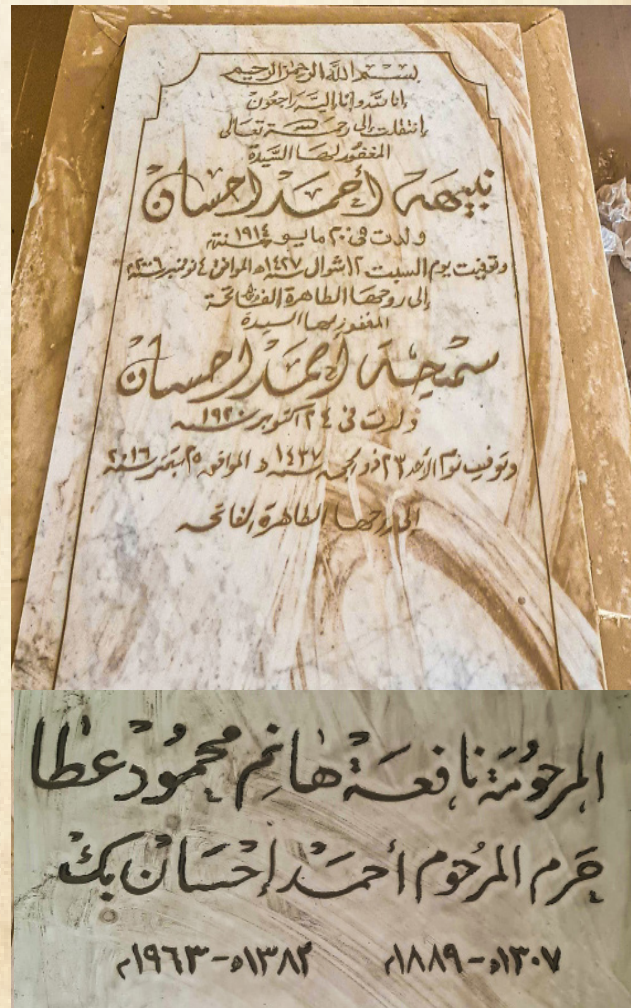 بسم الله الرحمن الرحيم
إنا لله وإنا إليه راجعون
إنتقلت إلى رحمة الله تعالى
المغفور لها السيدة
نبيهه أحمد احسان
ولدت فى ٢٠ مايو سنة ١٩١٤م
وتوفيت يوم السبت ١٢ شوال ١٤٢٧ه الموافق ٤ نوفمبر سنة ٢٠٠٦م
إلى روحها الطاهرة الفاتحة
المغفور لها السيدة
سميحه أحمد احسان
ولدت فى ٢٤ اكتوبر سنة ١٩٢٠
وتوفيت يوم الأحد ٢٣ ذو الحجه سنة ١٤٣٧ ه الموافق ٢٥ سبتمبر سنة ٢٠١٦
إلى روحها الطاهرة الفاتحه
المرحومة نافعة هانم محمود عطا
حرم المرحوم أحمد إحسان بك
١٣٠٧ه - ١٨٨٩م ١٣٨٢ه - ١٩٦٣م